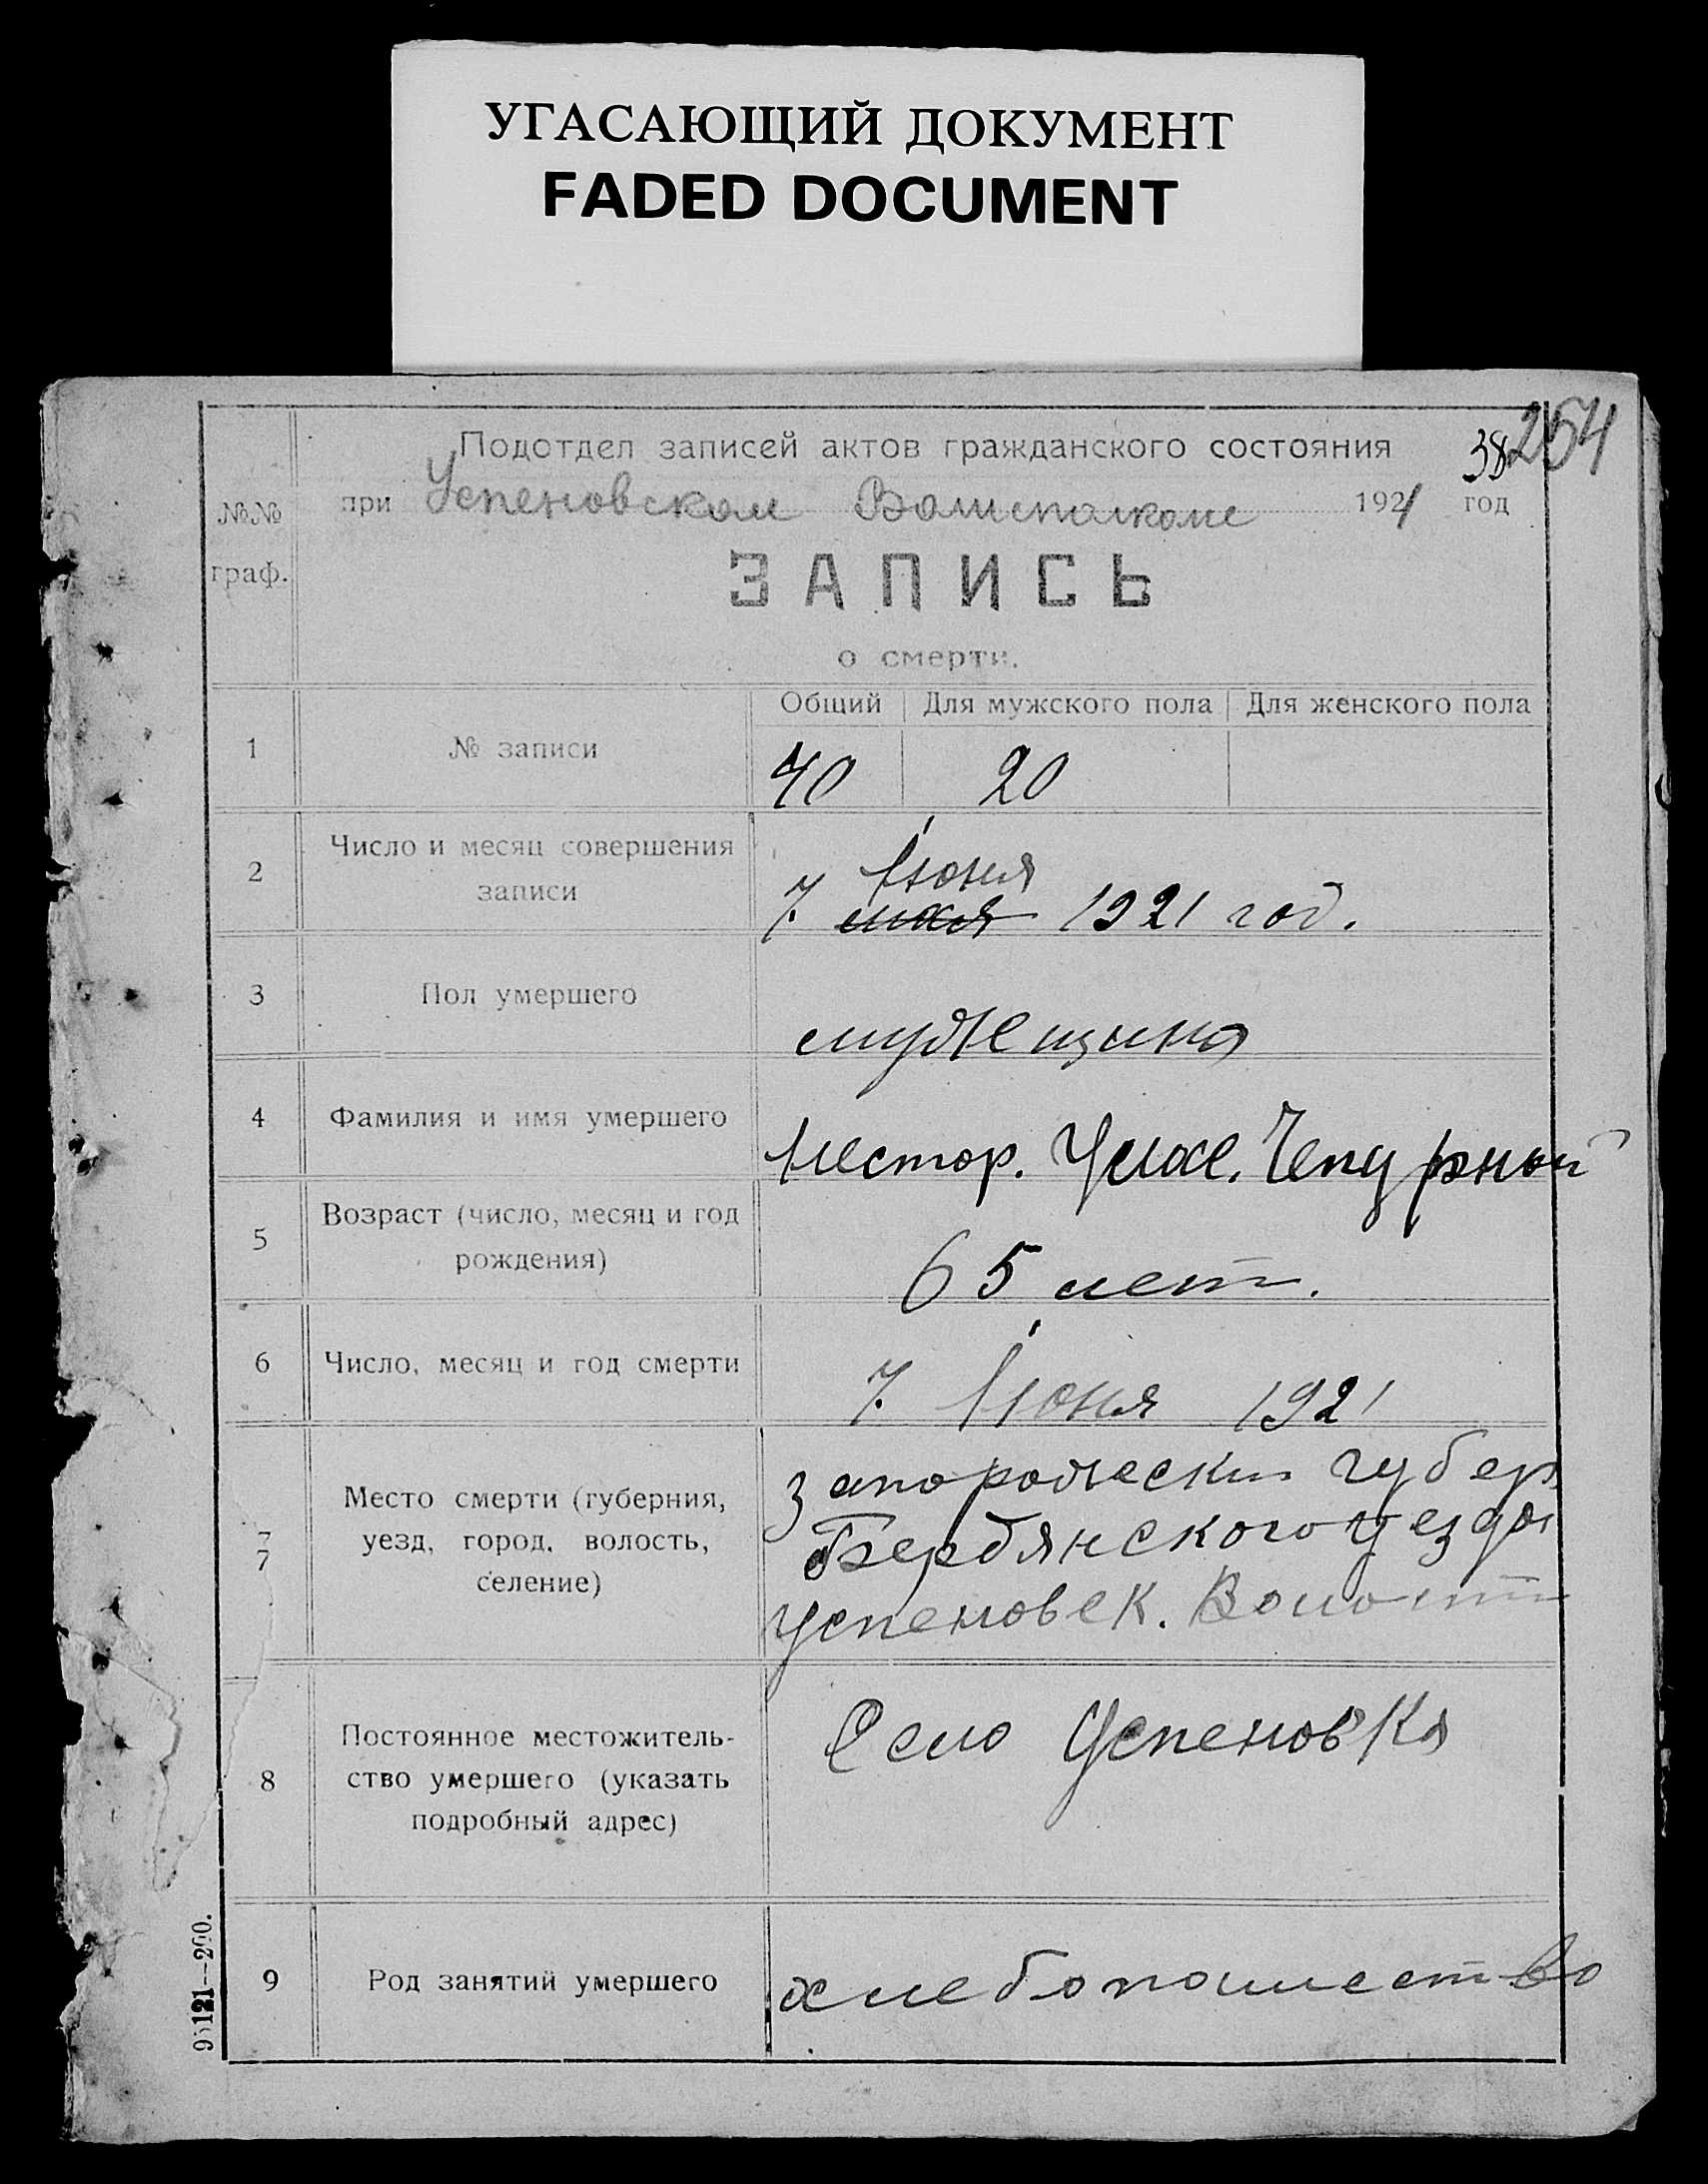 УГАСАЮЩИЙ ДОКУМЕНТ
FADED DOCUMENT
38 254
Подотдел записей актов гражданского состояния
при Успеновском Волисполкоме 1921 год
№№
граф.
ЗАПИСЬ
о смерти.
Общий Для мужского пола Для женского пола
1 № записи 40 20
2 Число и месяц совершения
записи
Июня
7. мая 1921 год.
3 Пол умершего
мужещина
4 Фамилия и имя умершего
Нестор. Чепурный
5 Возраст (число, месяц и год
рождения)
65 лет.
6 Число, месяц и год смерти
7. Июня 1921
7
7
Место смерти (губерния,
уезд, город, волость,
селение)
Запорожеский губер
Бердянского уезда
Успеновск. Волости
8 Постоянное местожитель-
ство умершего (указать
подробный адрес)
Село Успеновка
9 Род занятий умершего
хлебопашество
95121—200.